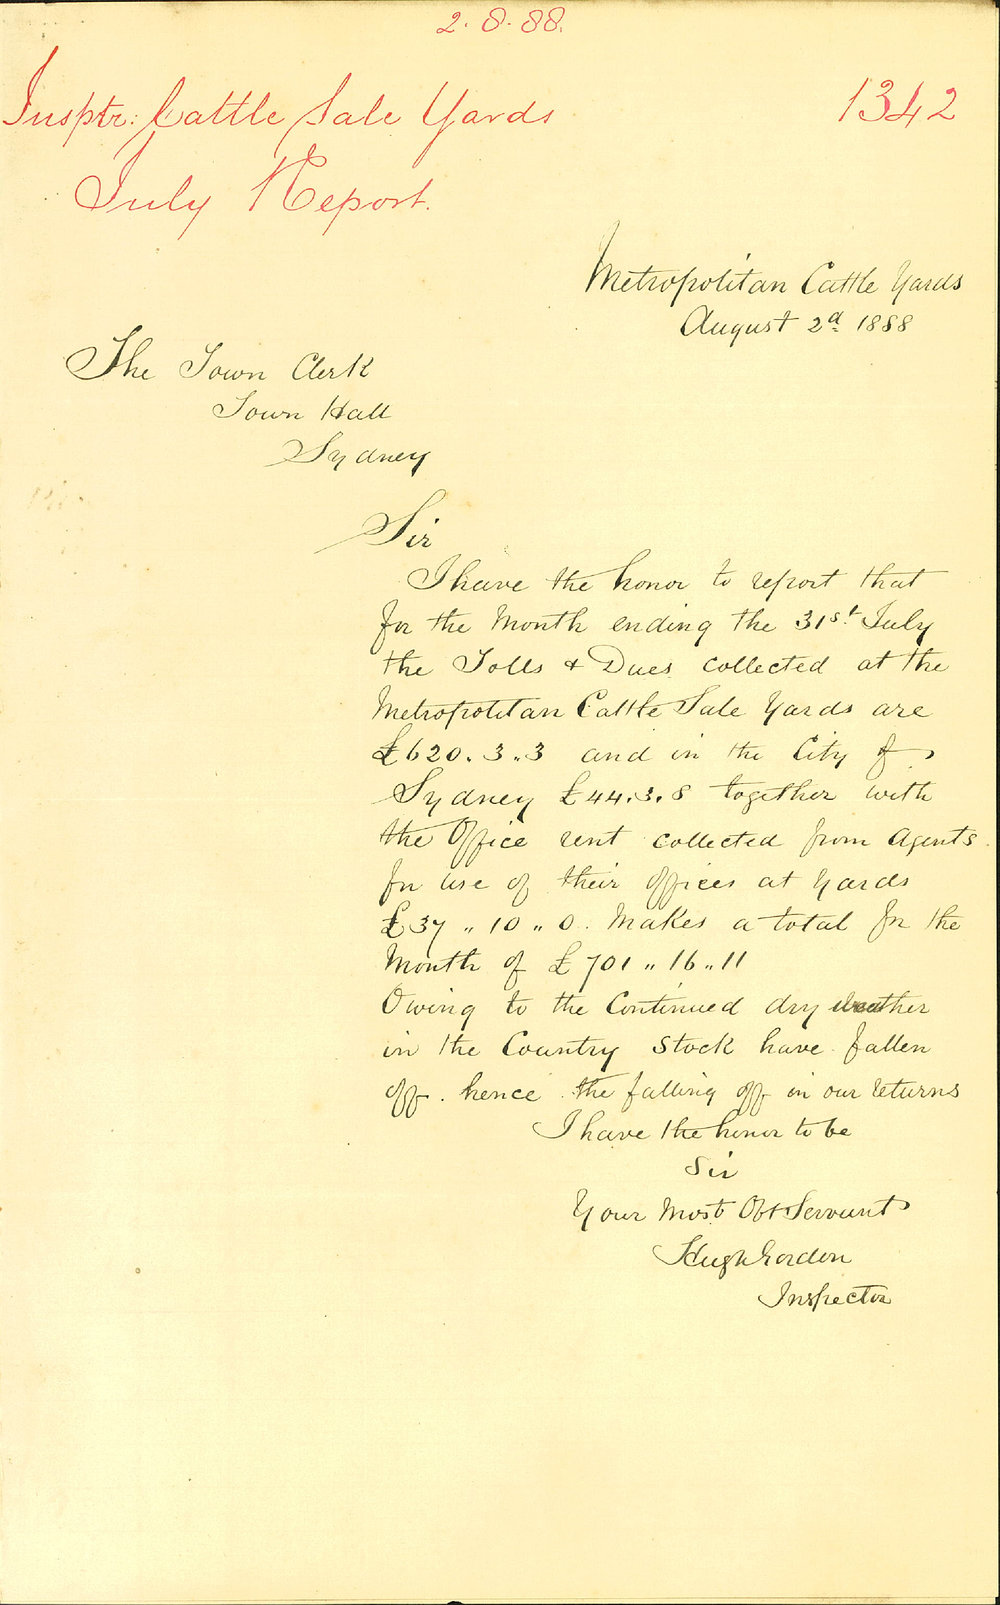 2.8.88.
Insptr: Cattle Sale Yards
1342
July Report.
Metropolitan Cattle Yards
August 2d 1888
The Town Clerk
Town Hall
Sydney
Sir
I have the honor to report that
for the Month ending the 31st July
the Tolls & Dues collected at the
Metropolitan Cattle Sale Yards are
£620.3.3 and in the City of
Sydney £44.3.8 together with
the Office rent collected from Agents
for use of their offices at Yards
£37 „ 10 „ 0. Makes a total for the
Month of £701 „ 16 „ 11
Owing to the Continued dry weather
in the Country Stock have fallen
off. hence the falling off in our returns
I have the honor to be
Sir
Your Most Obt Servant
Hugh Gordon
Inspector